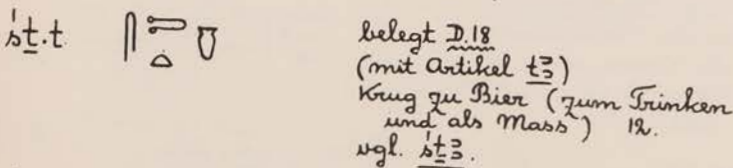 śṯ.t 𓋴𓍿𓏏𓏊 belegt D.18
(mit Artikel tꜣ)
Krug zu Bier (zum Trinken
und als Mass) 12.
vgl. śṯꜣ.